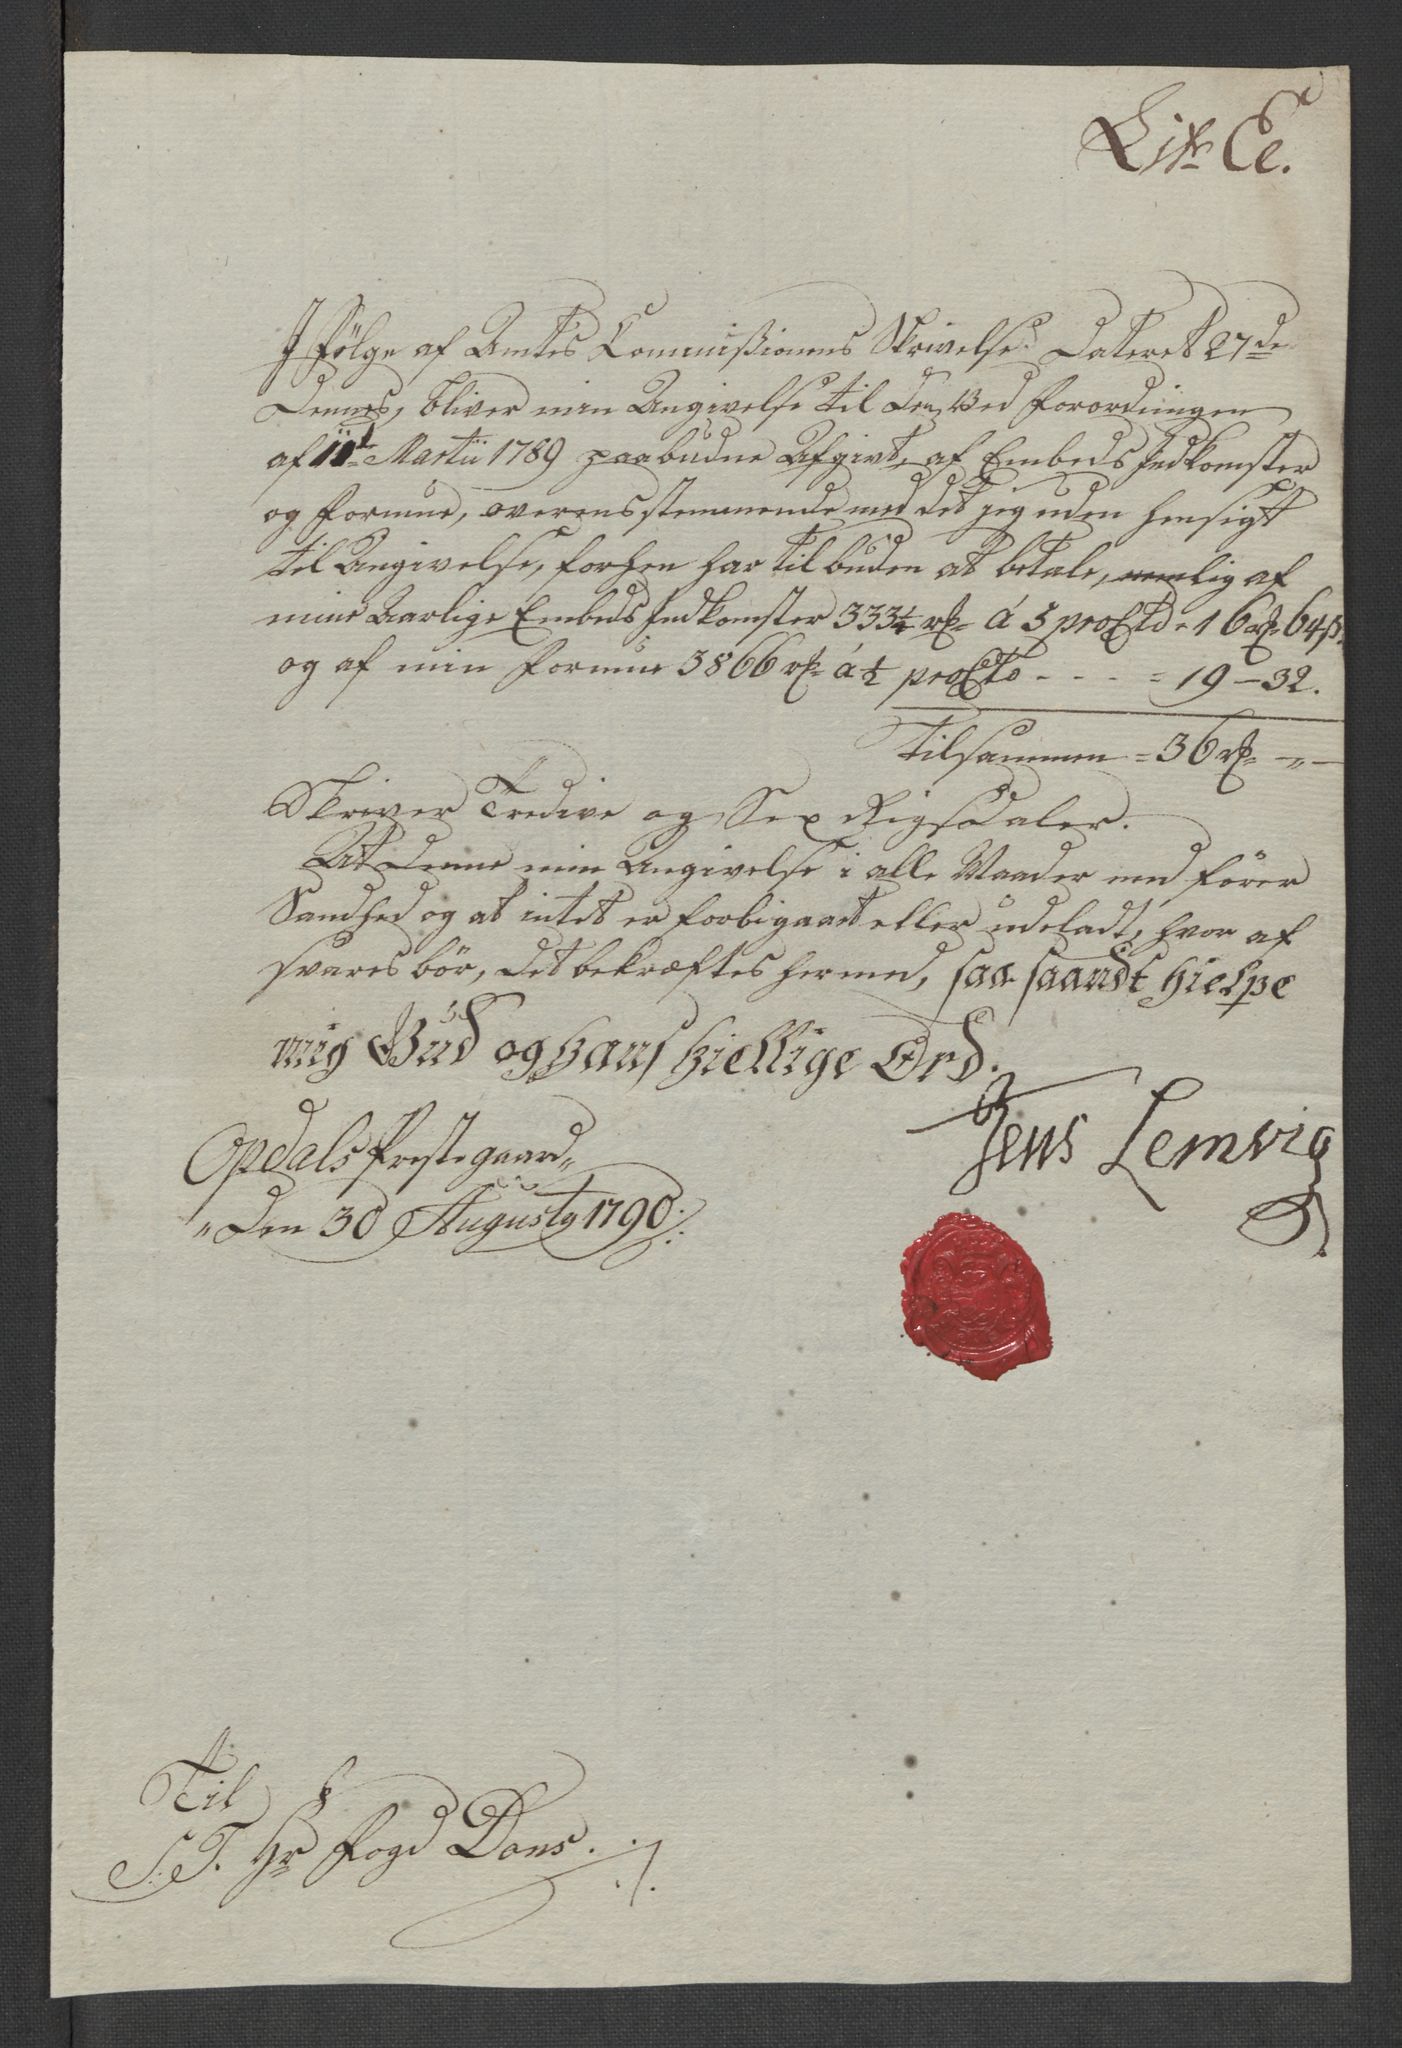 Litr Ee.
I Fölge af Amts Commissionens Skrivelse Dateret 27de
Dennes, bliver min Angivelse til den ved Forordningen
af 11t Martii 1789 paabudne Afgivt, af Embeds Indkomster
og Formue, overensstemmende med det jeg uden Hensigt
til Angivelse, forhen har tilbuden at betale, nemlig af
mine Aarlige Embeds Indkomster 333¼ rd á 5 proCto = 16 rd 64 ß
og af min Formue 3866 rd á ½ proCto - - - = 19 - 32.
tilsammen = 36 rd - „ -
Skriver Tredive og Sex Rigsdaler.
At denne min Angivelse i alle Maader medförer
Sandhed og at intet er forbigaaet eller udeladt, hvor af
svares bör, det bekræftes hermed, saa sandt hielpe
mig Gud og Hans hiellige Ord.
Jens Lemvig
Opdals Prestegaard
„Den 30 Augusty 1790
Til
S. T. Hr Foged Dons.